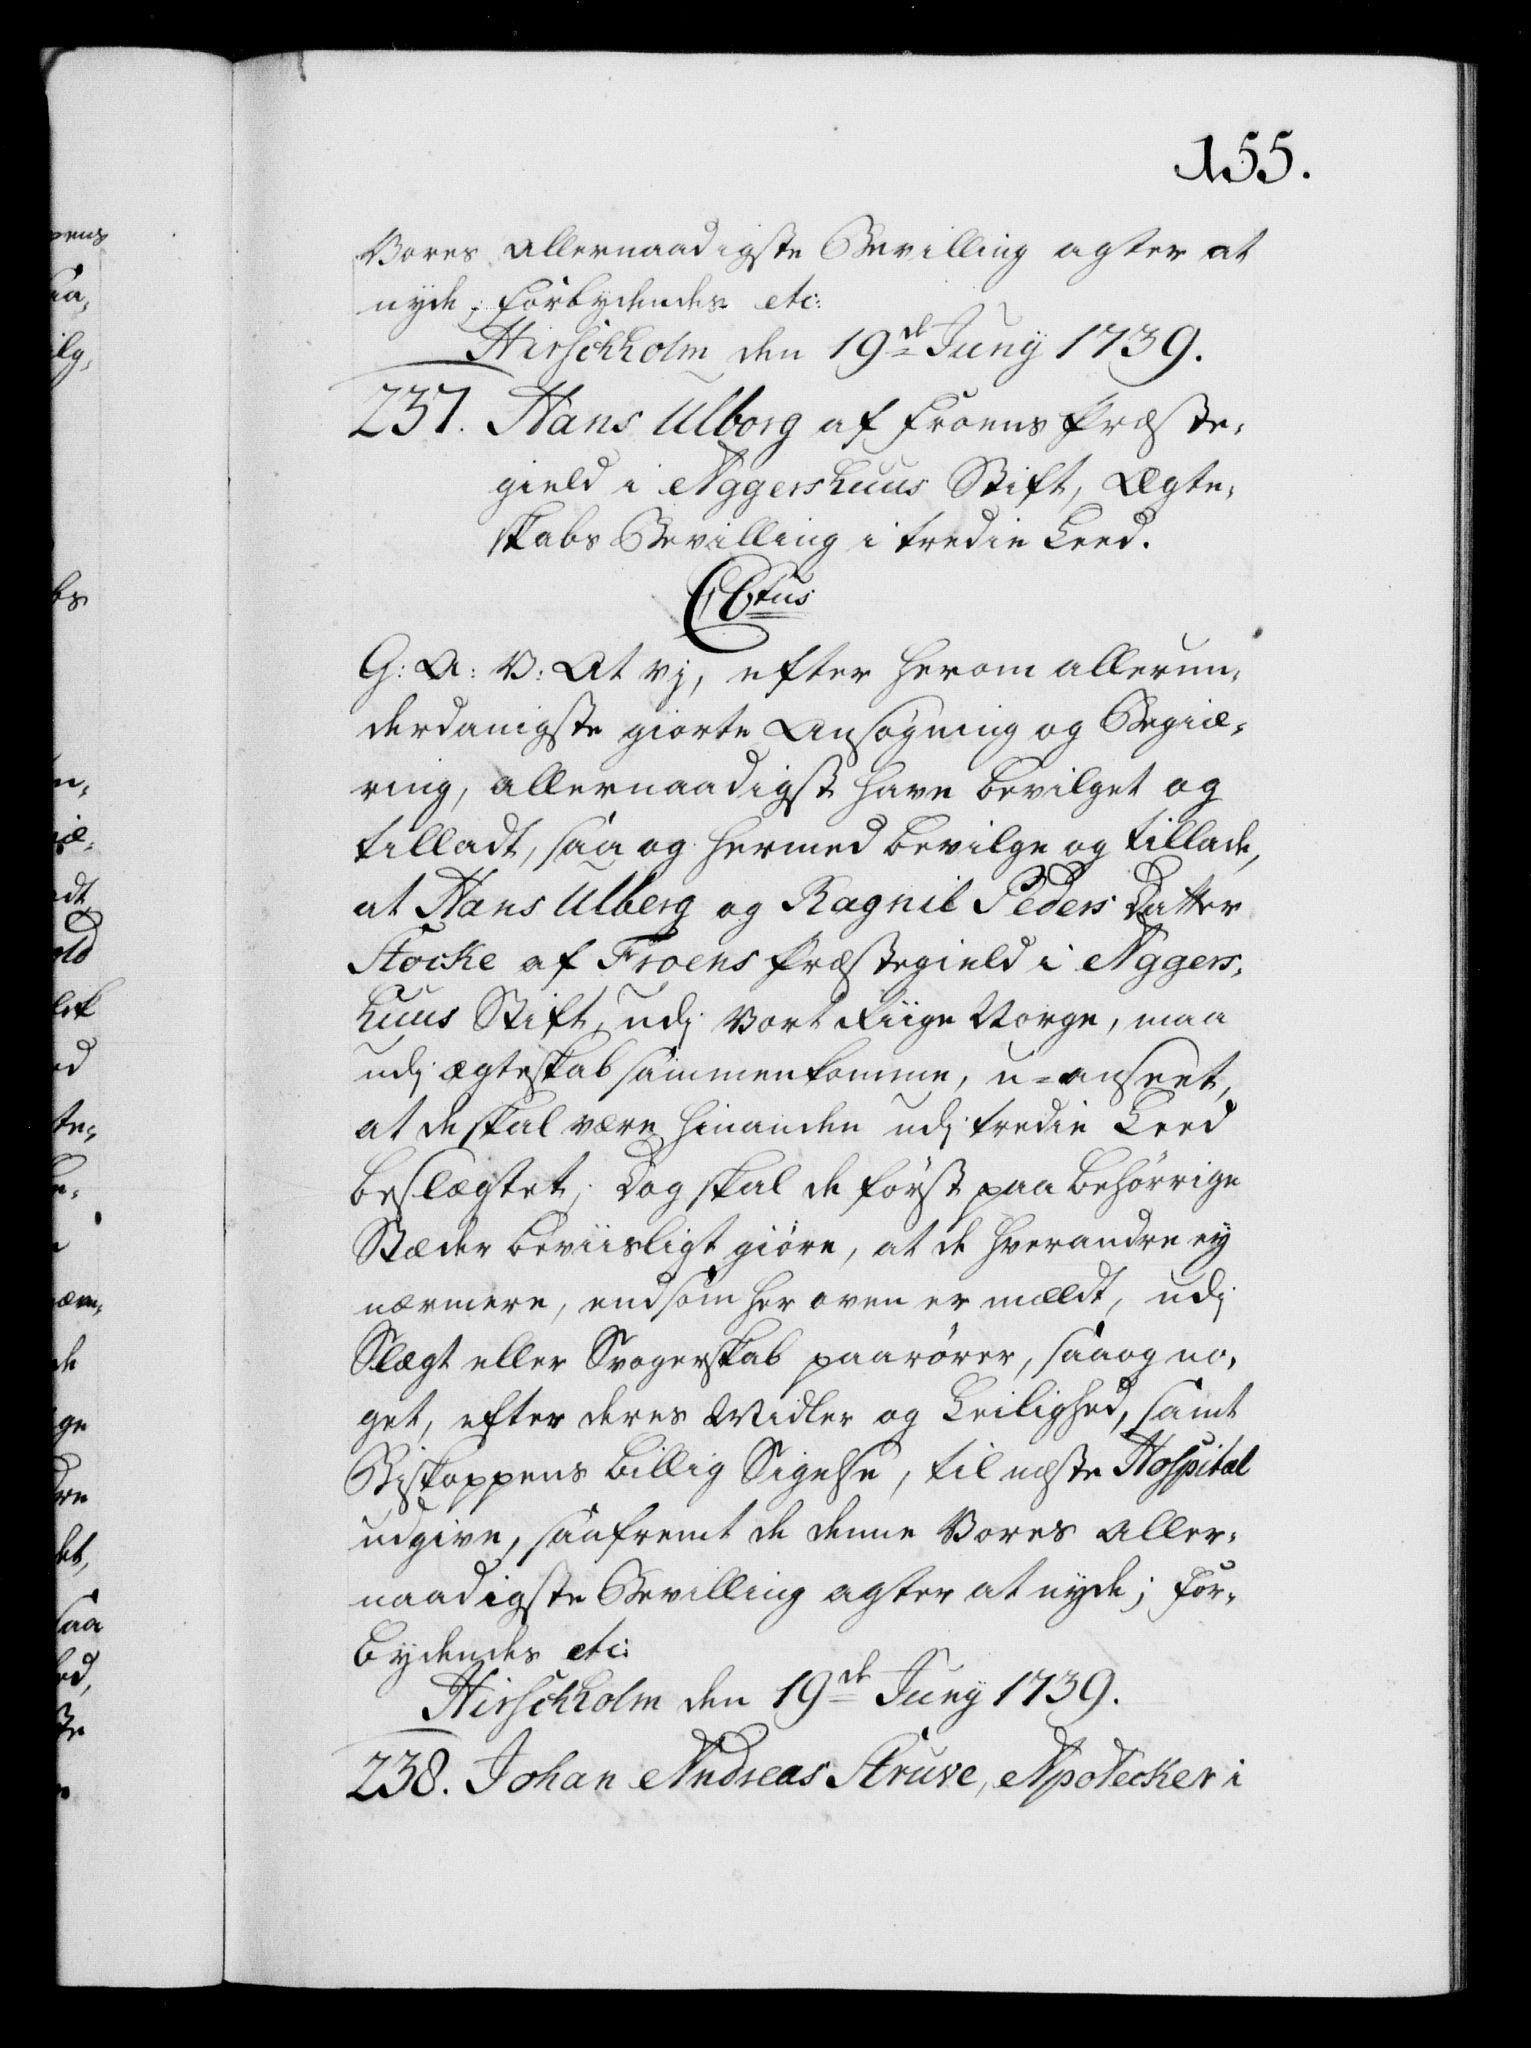 155.
Vores allernaadigste Bevilling agter at
nyde; forbydendes etc:
Hirschholm den 19de Juny 1739.
237. Hans Ulborg af Froens Præste-
gield i Aggershuus Stift, Ægte-
skabs Bevilling i tredie Leed.
C 6tus
G: A: V: At vj, efter herom allerun-
derdanigste giorte Ansøgning og Begiæ-
ring, allernaadigst have bevilget og
tilladt, saa og hermed bevilge og tillade,
at Hans Ulberg og Ragnil Peders Datter
Stocke af Froens Præstegield i Aggers-
huus Stift, udj Vort Riige Norge, maa
udj ægteskab sammenkomme, u-anseet,
at de skal være hinanden udj tredie Leed
beslægtet; Dog skal de først paa behørrige
Stæder beviisligt giøre, at de hverandre ey
nærmere, end som her oven er meldt, udj
Slægt eller Svogerskab paarører, saa og no-
get, efter deres Midler og Leilighed, samt
Biskoppens billig Sigelse, til næste Hospital
udgive, saafremt de denne Vores Aller-
naadigste Bevilling agter at nyde; for-
bydendes etc:
Hirschholm den 19de Juny 1739.
238. Johan Andreas Struve, Apotecker i